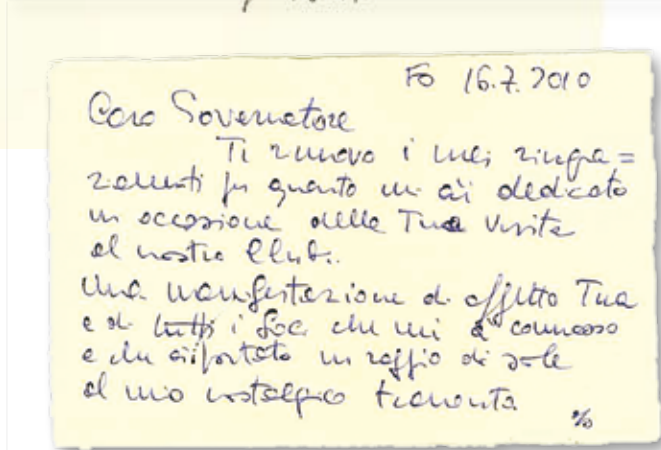 FO 16.7.2010
Caro Governatore
Ti rinnovo i miei ringra=
ziamenti per quanto mi ai dedicato
in occasione della Tua visita
al nostro Club.
Una manifestazione di affetto Tua
e di tutti i Soci che mi à commosso
e che à portato un raggio di sole
al mio nostalgico tramonto
%